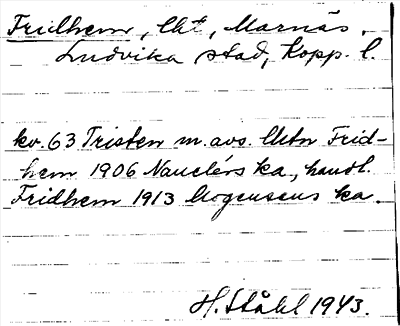 Fridhem, lht, Marnäs,
Ludvika stad, Kopp. l.
kv. 63 Tristen m. avs. lhtn Frid-
hem 1906 Nauclérs ka, handl.
Fridhem 1913 Mogensens ka.
H. Ståhl 1943.